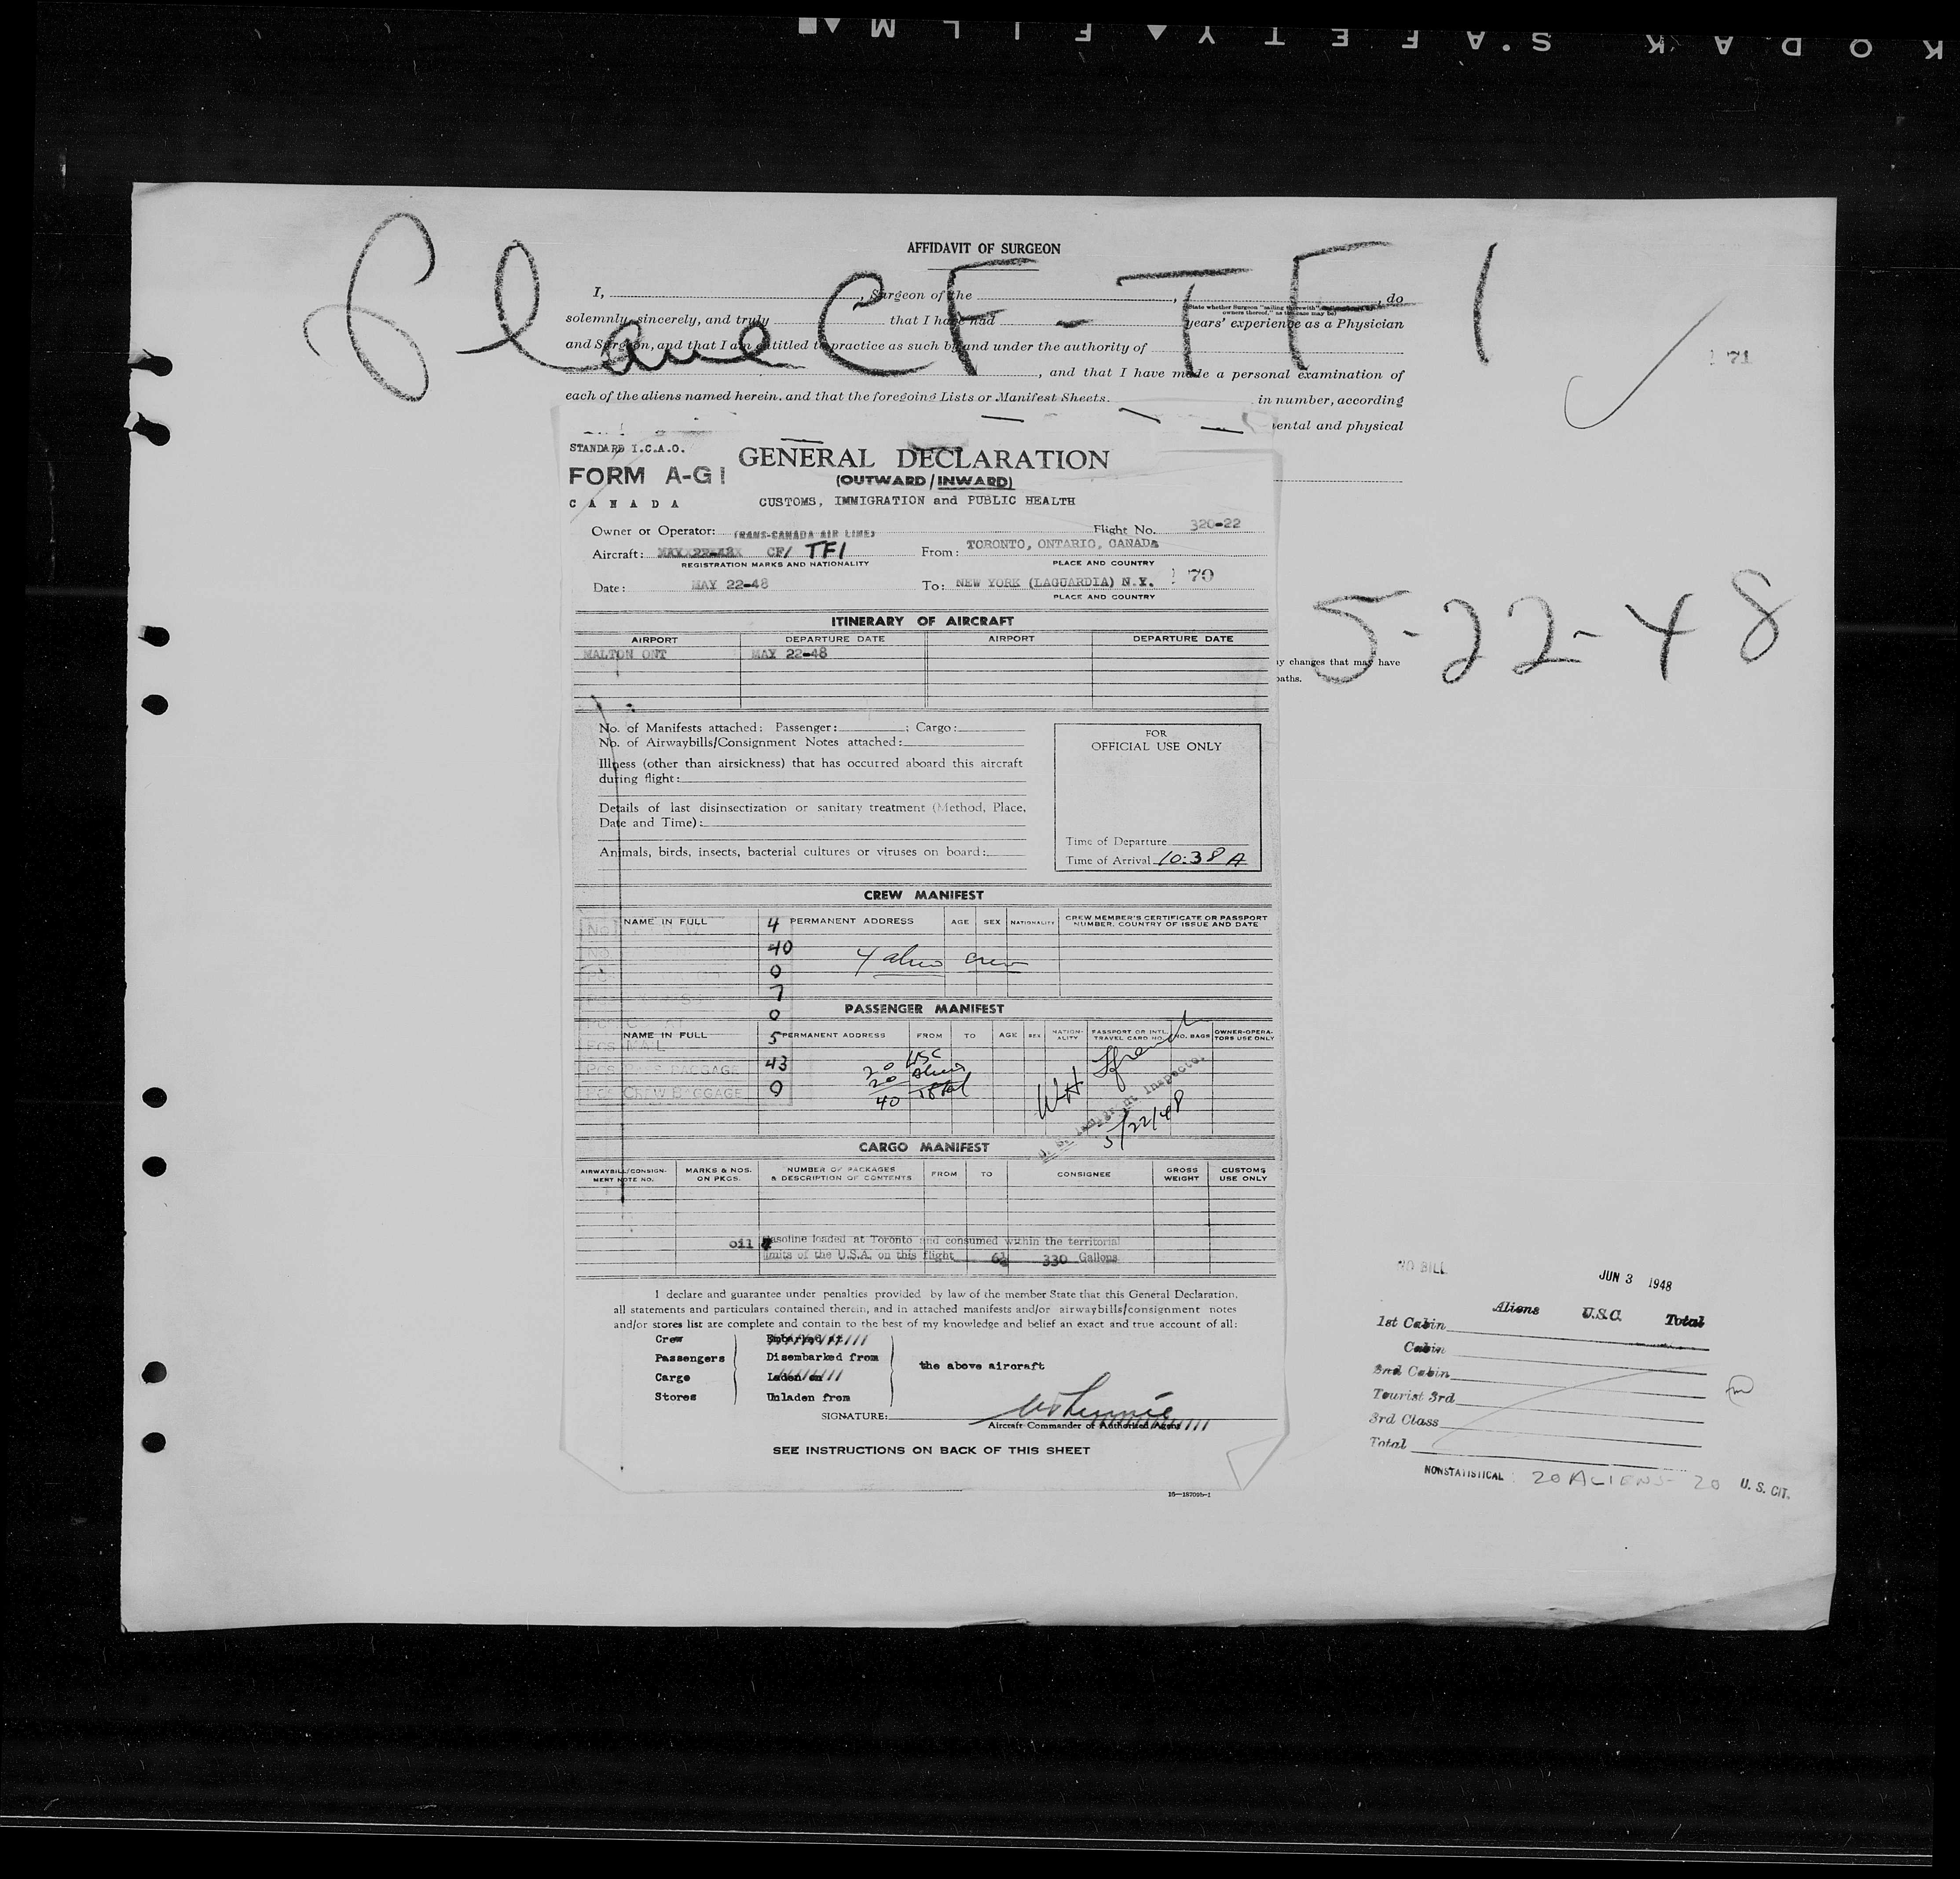 KODAK S.AFETY FILM
AFFIDAVIT OF SURGEON
Plane CF-TFI
I, , Surgeon of the , , do
(State whether Surgeon "sailing therewith" owners thereof," as the case may be)
solemnly, sincerely, and truly that I have had years' experience as a Physician
and Surgeon, and that I am entitled to practice as such by and under the authority of
, and that I have made a personal examination of
71
each of the aliens named herein, and that the foregoing Lists or Manifest Sheets, in number, according
mental and physical
STANDARD I.C.A.O.
FORM A-G1
CANADA
GENERAL DECLARATION
(OUTWARD/INWARD)
CUSTOMS, IMMIGRATION and PUBLIC HEALTH
Owner or Operator: TRANS-CANADA AIR LINES Flight No. 320-22
Aircraft: MAY 22-48 CF/ TFI From: TORONTO, ONTARIO, CANADA
REGISTRATION MARKS AND NATIONALITY PLACE AND COUNTRY
Date: MAY 22-48 To: NEW YORK (LAGUARDIA) N.Y. 70
PLACE AND COUNTRY
5-22-48
ITINERARY OF AIRCRAFT
AIRPORT DEPARTURE DATE AIRPORT DEPARTURE DATE
MALTON ONT MAY 22-48
any changes that may have
oaths.
No. of Manifests attached: Passenger: ; Cargo:
No. of Airwaybills/Consignment Notes attached:
Illness (other than airsickness) that has occurred aboard this aircraft
during flight:
Details of last disinsectization or sanitary treatment (Method, Place,
Date and Time):
Animals, birds, insects, bacterial cultures or viruses on board:
FOR
OFFICIAL USE ONLY
Time of Departure
Time of Arrival 10:38 A
CREW MANIFEST
NAME IN FULL PERMANENT ADDRESS AGE SEX NATIONALITY CREW MEMBER'S CERTIFICATE OR PASSPORT
NUMBER, COUNTRY OF ISSUE AND DATE
4
40
4 alien crew
0
7
0
PASSENGER MANIFEST
NAME IN FULL PERMANENT ADDRESS FROM TO AGE SEX NATIONALITY PASSPORT OR INTL. TRAVEL CARD NO. NO. BAGS OWNER-OPERATORS USE ONLY
PCS MAIL 5
PCS PASS BAGGAGE 43
PCS CREW BAGGAGE 0
20 USC
20 Aliens
40 Total
WH
U. S. Immigrant Inspector
5/22/48
CARGO MANIFEST
AIRWAYBILL/CONSIGNMENT NOTE NO. MARKS & NOS. ON PKGS. NUMBER OF PACKAGES & DESCRIPTION OF CONTENTS FROM TO CONSIGNEE GROSS WEIGHT CUSTOMS USE ONLY
oil & Gasoline loaded at Toronto and consumed within the territorial
limits of the U.S.A. on this flight 6½ 330 Gallons
I declare and guarantee under penalties provided by law of the member State that this General Declaration,
all statements and particulars contained therein, and in attached manifests and/or airwaybills/consignment notes
and/or stores list are complete and contain to the best of my knowledge and belief an exact and true account of all:
Crew Embarked at
Passengers Disembarked from the above aircraft
Cargo Laden on
Stores Unladen from
SIGNATURE:
Aircraft Commander or Authorized Agent
SEE INSTRUCTIONS ON BACK OF THIS SHEET
16—18709b-1
NO BILL JUN 3 1948
Aliens U.S.C. Total
1st Cabin
Cabin
2nd Cabin
Tourist 3rd
3rd Class
Total
NONSTATISTICAL 20 ALIENS- 20 U. S. CIT.